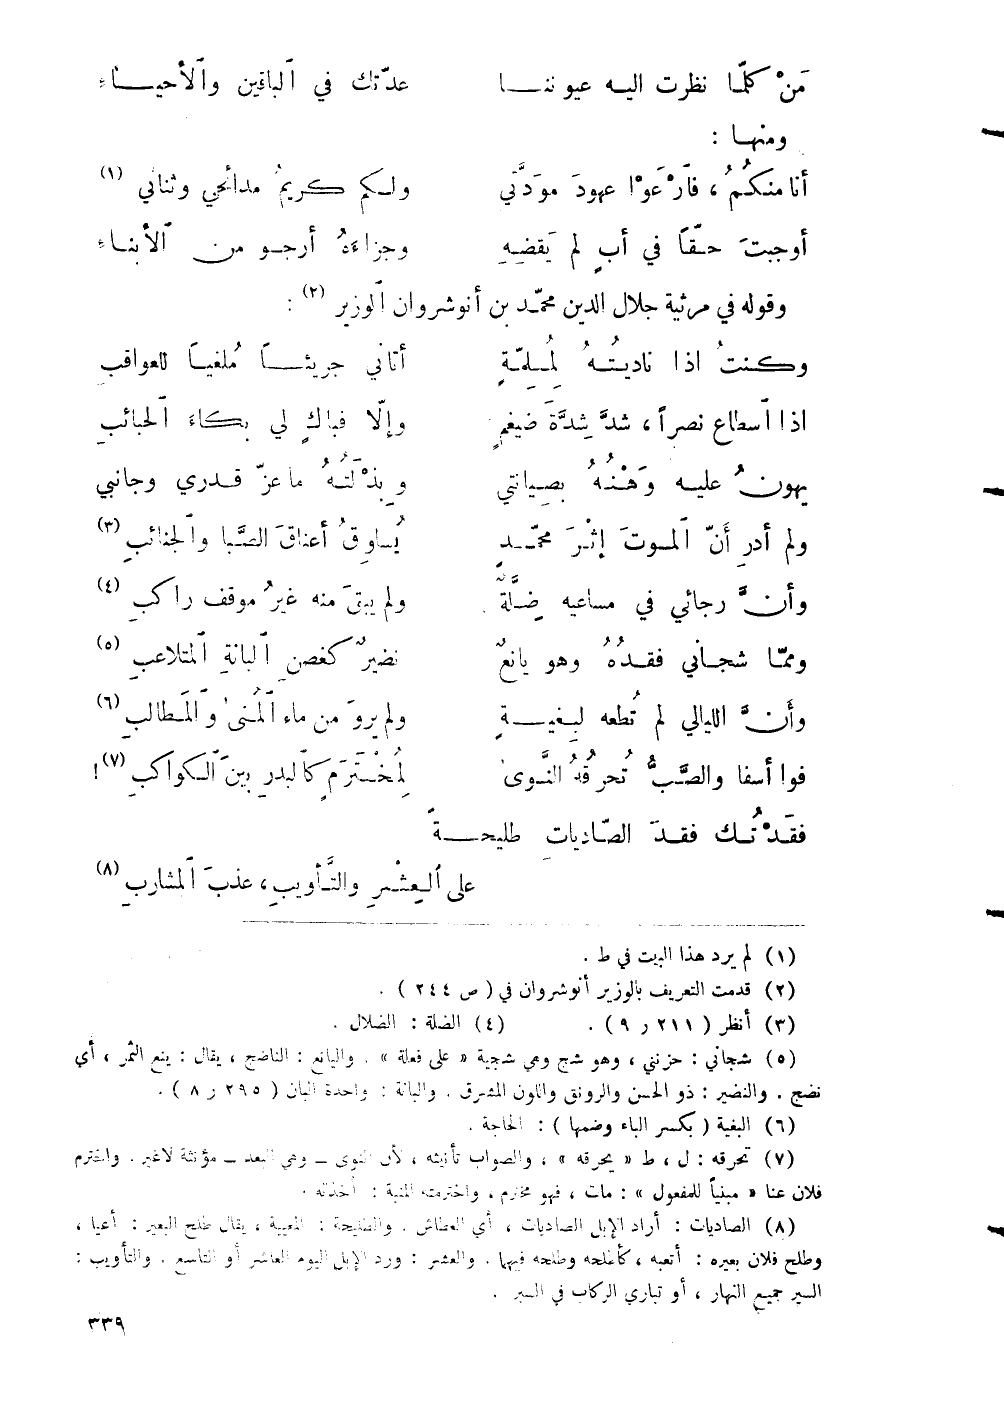 مَنْ كلّما نظرت اليـه عيوننـا عدّتك في ٱلباقين وٱلأحيـاءِ
ومنهـا :
أنا منكمُ ، فٱرْعَوْا عهودَ مودَّتي ولـكم كريمُ مدائحي وثنائي (١)
أوجبتَ حقّـاً في أبٍ لم يَقضِهِ وجزاءَهُ أرجـو من ٱلأبنـاءِ
وقوله في مرثية جلال الدين محمّد بن أنوشروان ٱلوزير (٢) :
وكنتُ اذا ناديتُـهُ لِمُلِمّةٍ أتاني جريئـاً مُلغيـاً للعواقبِ
اذا ٱسطاع نصراً ، شدَّ شِدَّةَ ضيغمٍ وإلّا فباكٍ لي بكاءَ ٱلحبائبِ
يهونُ عليـه وَهْنُهُ بصيانتي وبِذْلَتُهُ ماعزّ قـدري وجانبي
ولم أدرِ أَنّ ٱلموتَ إثْرَ محمّـدٍ يُساوِقُ أعناقَ الصَّبا وٱلجنائبِ (٣)
وأنَّ رجائي في مساعيه ضَلَّةٌ ولم يبقَ منه غيرُ موقف راكبِ (٤)
وممّـا شجـاني فقـدُهُ وهو يانعٌ نضيرٌ كغصنِ ٱلبانةِ ٱلمتلاعبِ (٥)
وأنَّ الليالي لم تُطعه لبغيـةٍ ولم يروَ من ماء ٱلمُنىٰ وٱلمَطالبِ (٦)
فوا أسفا والصَّبُّ تُحرقُهُ النَّوىٰ لمُخْتَرَمٍ كٱلبدرِ بينَ ٱلكواكبِ (٧) !
فقَدْتُـك فقـدَ الصّادياتِ طليحـةً
على ٱلعِشْرِ والتَّأويبِ ، عذبَ ٱلمشاربِ (٨)
(١) لم يرد هذا البيت في ط .
(٢) قدمت التعريف بالوزير أنوشروان في ( ص ٢٤٤ ) .
(٣) أنظر ( ٢١١ ر ٩ ) . (٤) الضلة : الضلال .
(٥) شجاني : حزنني ، وهو شج وهي شجية « على فعلة » . واليانع : الناضج ، يقال : ينع الثمر ، أي
نضج . والنضير : ذو الحسن والرونق واللون المشرق . والبانة : واحدة البان ( ٢٩٥ ر ٨ ) .
(٦) البغية ( بكسر الباء وضمها ) : الحاجة .
(٧) تحرقه : ل ، ط « يحرقه » ، والصواب تأنيثه ، لأن النوى ــ وهي البعد ــ مؤنثة لاغير . واخترم
فلان عنا « مبنياً للمفعول » : مات ، فهو مخترم ، واخترمته المنية : أخذته .
(٨) الصاديات : أراد الإبل الصاديات ، أي العطاش . والطليحة : المعيية ، يقال طلح البعير : أعيا ،
وطلح فلان بعيره : أتعبه ، كأطلحه وطلحه فيهما . والعشر : ورد الإبل اليوم العاشر أو التاسع . والتأويب :
السير جميع النهار ، أو تباري الركاب في السير .
٣٣٩